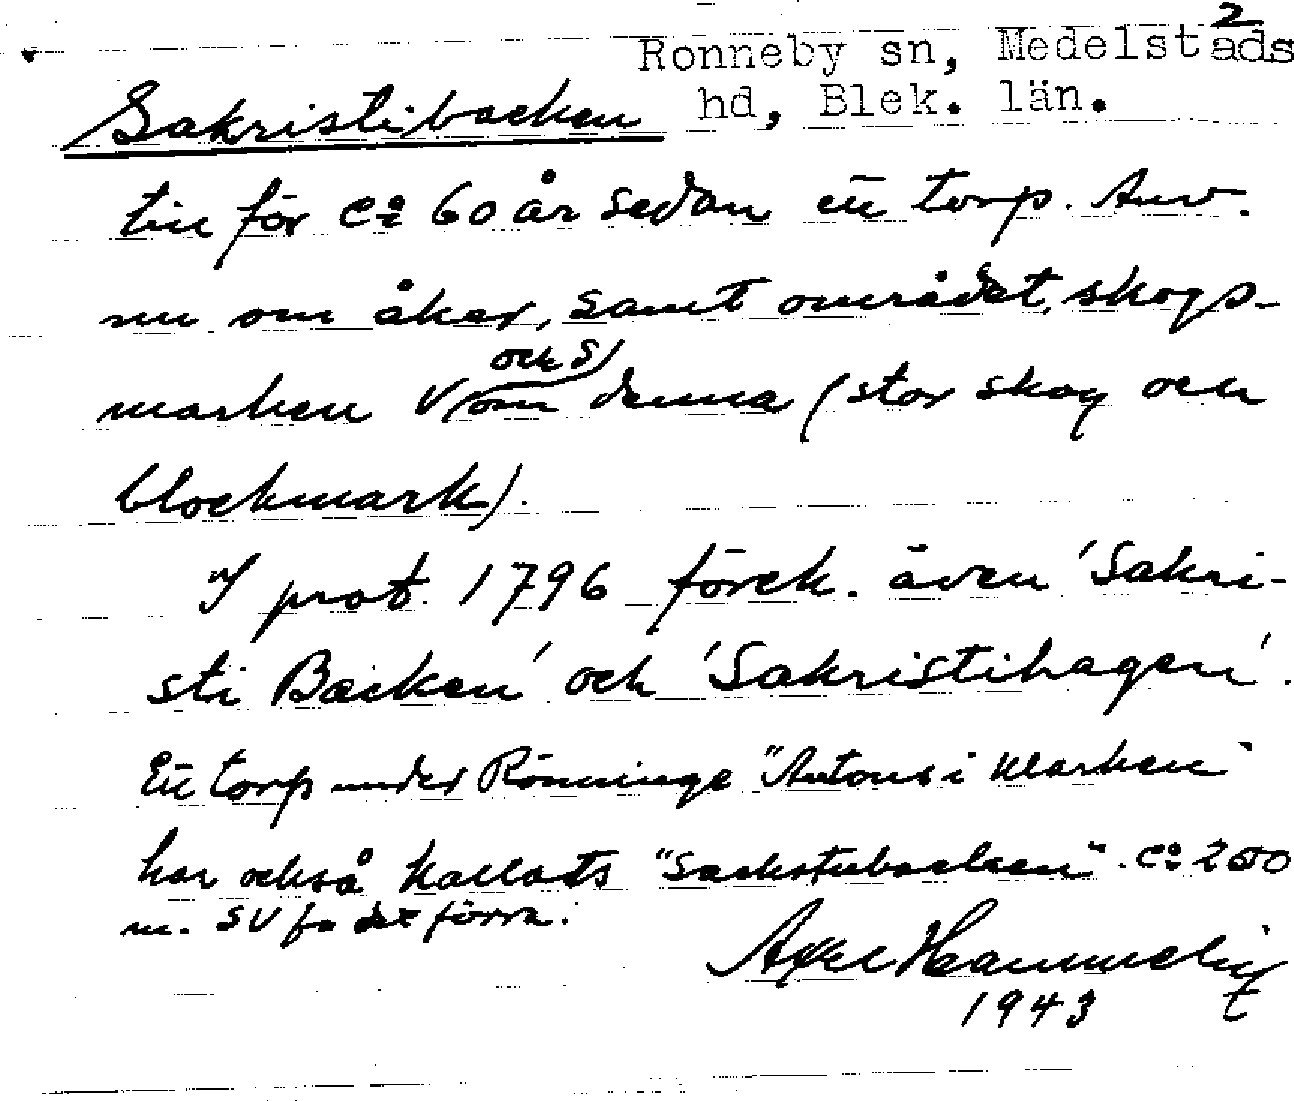 2
Ronneby sn, Medelstads
hd, Blek. län.
Sakristibacken
till för c:a 60 år sedan ett torp. Anv.
nu om åker, samt området, skogs-
marken V om och S denna (stor skog och
blockmark).
I prot. 1796 förek. även 'Sakri-
sti Backen' och 'Sakristihagen'.
Ett torp under Rönninge "Antons i Marken"
har också kallats "Sackstubacken". c:a 200
m. SV fr det förra.
Axel Hammelin
1943